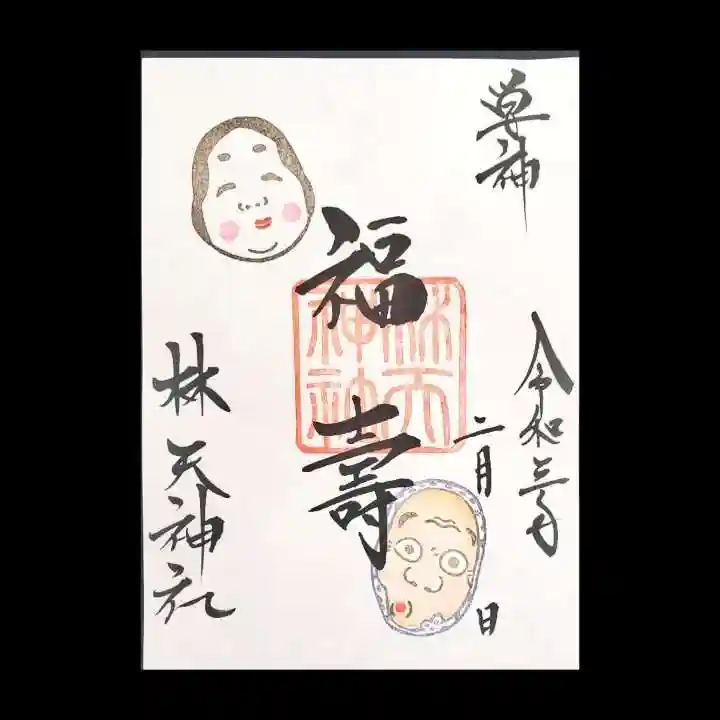 神
令和三年
二月 日
福壽
林天神社
林天
神社